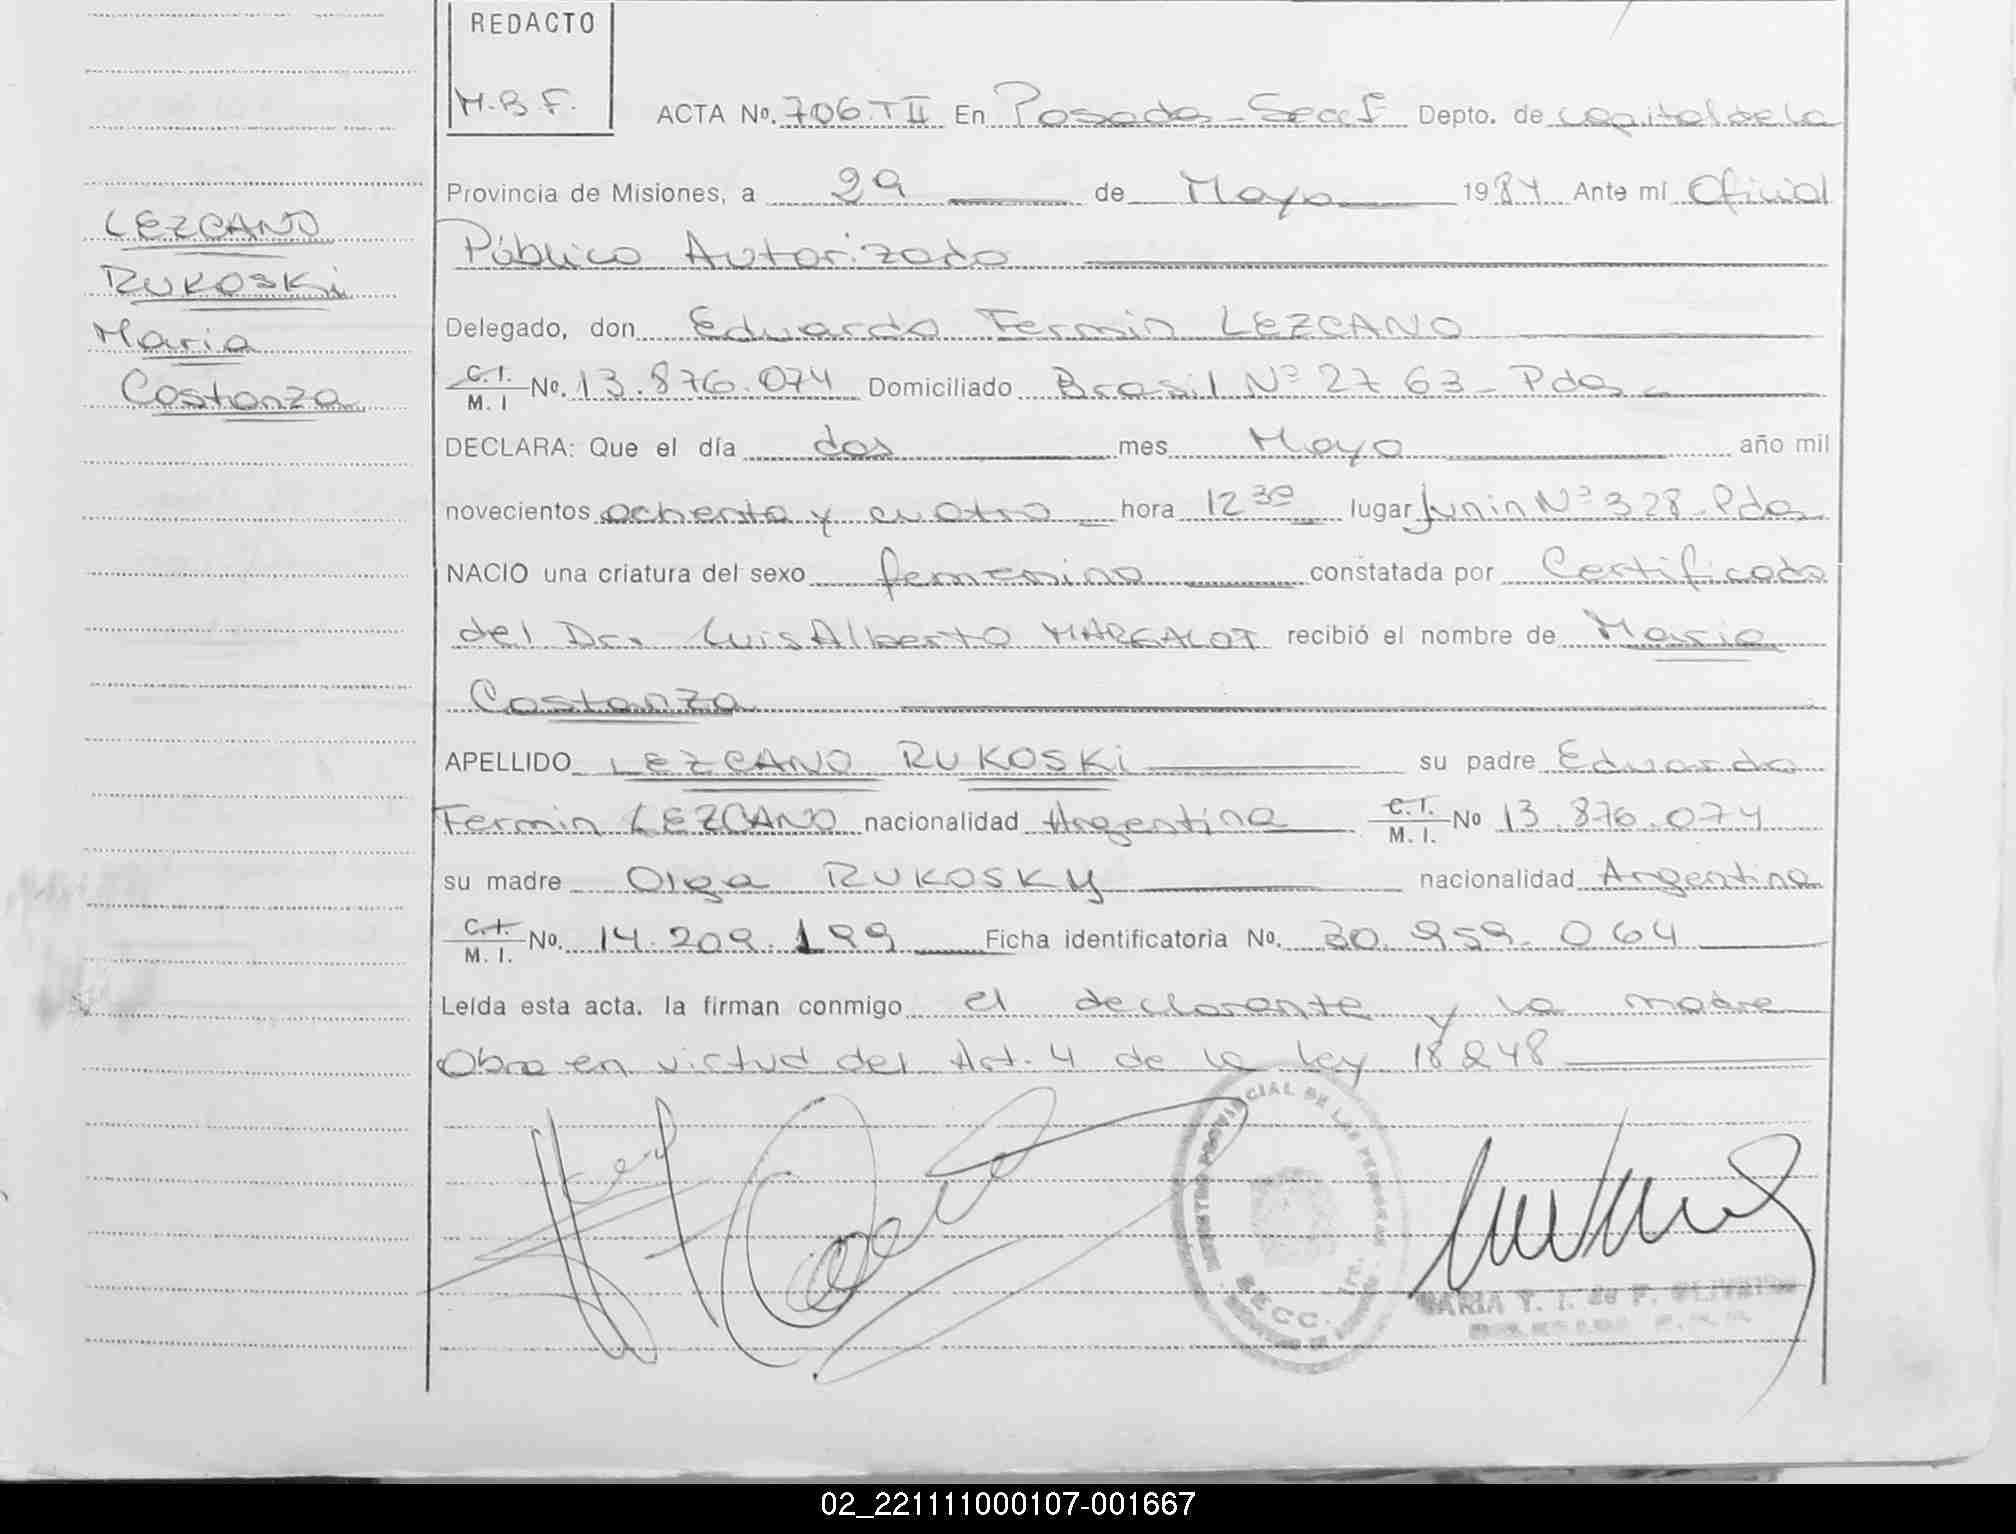 REDACTO
M.B.F.
ACTA No. 706.TII En Posadas - Secc 1ª Depto. de capital de la
Provincia de Misiones, a 29 de Mayo 1984 Ante mí Oficial
Público Autorizado
Delegado, don Eduardo Fermin LEZCANO
C.I. M.I No. 13.876.074 Domiciliado Brasil Nº 2763 - Pdas
DECLARA: Que el día dos mes Mayo año mil
novecientos ochenta y cuatro hora 12 30 lugar Junin Nº 328 - Pdas
NACIO una criatura del sexo femenino constatada por Certificado
del Dr. Luis Alberto MARGALOT recibió el nombre de Maria
Costanza
APELLIDO LEZCANO RUKOSKi su padre Eduardo
Fermin LEZCANO nacionalidad Argentina C.I. M.I. No 13.876.074
su madre Olga RUKOSKY nacionalidad Argentina
C.I. M.I. No. 14.209.199 Ficha identificatoria No. 30.959.064
Leída esta acta. la firman conmigo el declarante y la madre
Obra en virtud del Art. 4 de la Ley 18248
LEZCANO
RUKOSKi
Maria
Costanza
REGISTRO PROVINCIAL DE LAS PERSONAS
SECC. 1ra.
MARIA T. I. de F. OLIVEIRA
02_221111000107-001667